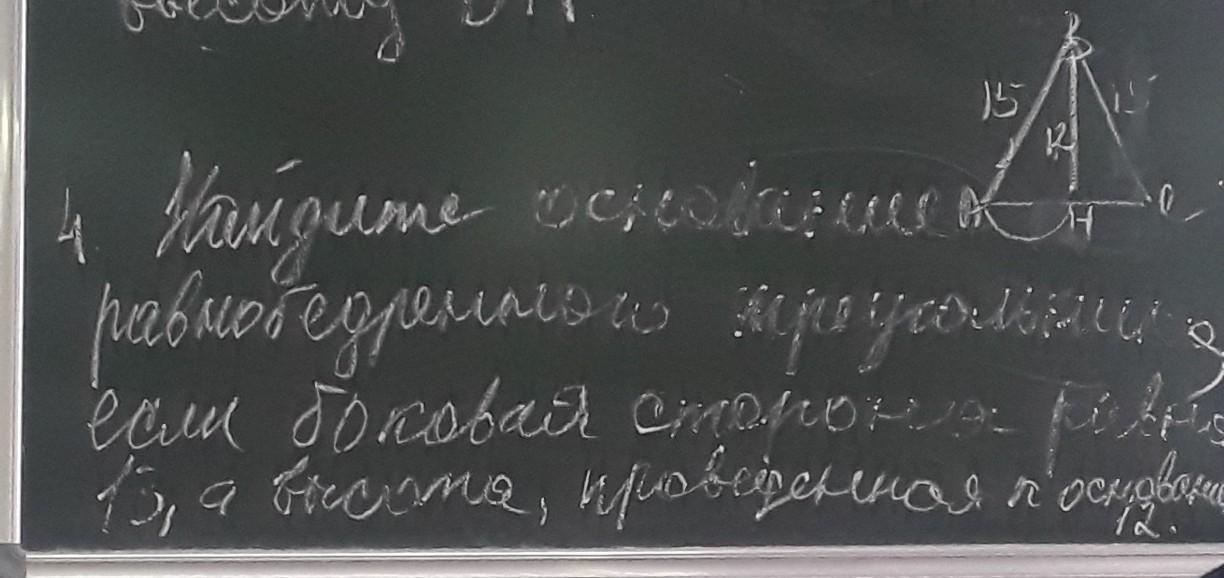 высоту BH.
B
15 15
12
4. Найдите основание A H C
равнобедренного треугольника,
если боковая сторона равна
15, а высота, проведенная к основани
12.